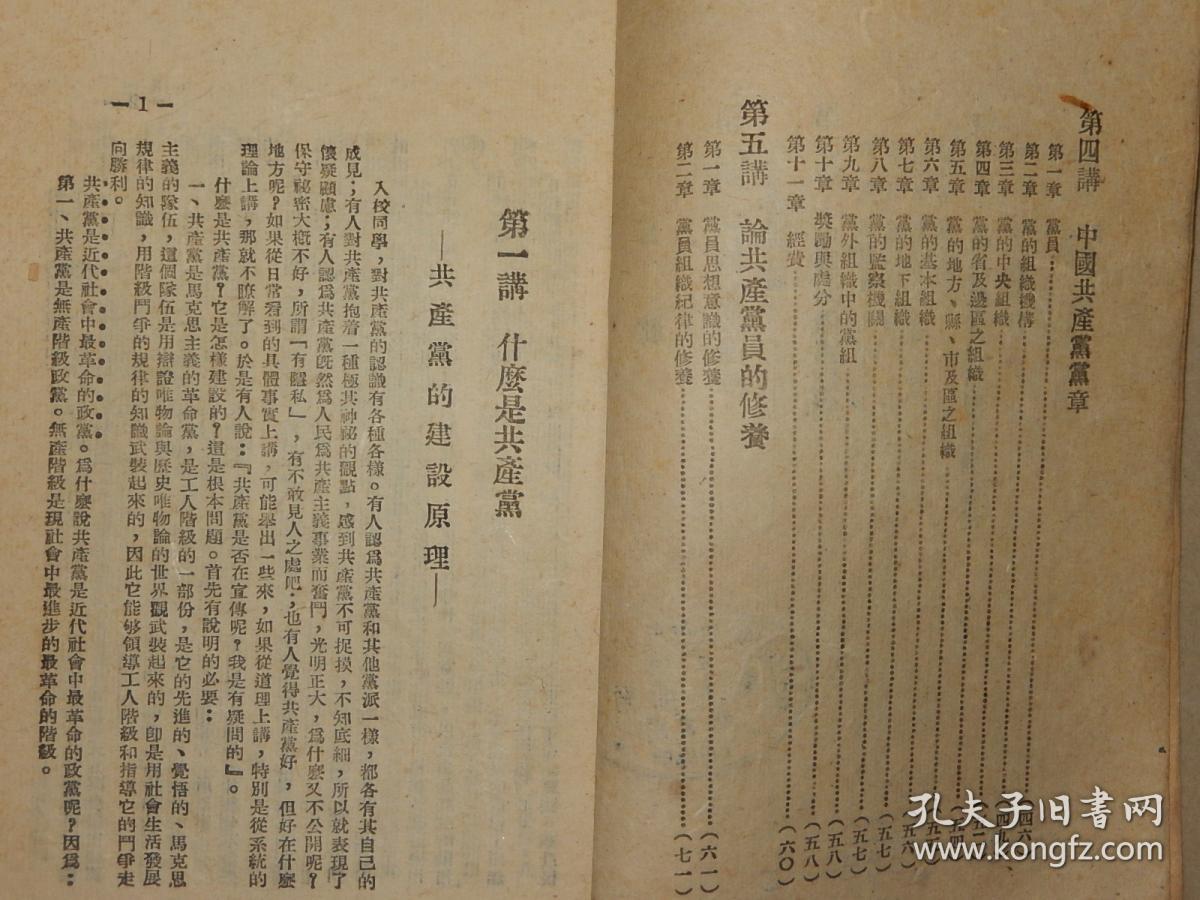 第四講　中國共產黨黨章
第一章　黨員……………………………………（四六）
第二章　黨的組織機構……………………………………
第三章　黨的中央組織……………………………………
第四章　黨的省及邊區之組織……………………………………
第五章　黨的地方、縣、市及區之組織……………………………………
第六章　黨的基本組織……………………………………
第七章　黨的地下組織……………………………………（五六）
第八章　黨的監察機關……………………………………（五七）
第九章　黨外組織中的黨組……………………………………（五七）
第十章　獎勵與處分……………………………………（五八）
第十一章　經費……………………………………（六〇）
第五講　論共產黨員的修養
第一章　黨員思想意識的修養……………………………………（六一）
第二章　黨員組織紀律的修養……………………………………（七一）
第一講　什麼是共產黨
—共產黨的建設原理—
入校同學，對共產黨的認識有各種各樣。有人認爲共產黨和其他黨派一樣，都各有其自己的
成見；有人對共產黨抱着一種極其神祕的觀點，感到共產黨不可捉摸，不知底細，所以就表現了
懷疑顧慮；有人認爲共產黨既然爲人民爲共產主義事業而奮鬥，光明正大，爲什麼又不公開呢？
保守祕密大概不好，所謂「有隱私」，有不敢見人之處吧；也有人覺得共產黨好，但好在什麼
地方呢？如果從日常看到的具體事實上講，可能舉出一些來，如果從道理上講，特別是從系統的
理論上講，那就不瞭解了。於是有人說：『共產黨是否在宣傳呢？我是有疑問的』。
什麼是共產黨？它是怎樣建設的？這是根本問題。首先有說明的必要：
一、共產黨是馬克思主義的革命黨，是工人階級的一部份，是它的先進的、覺悟的、馬克思
主義的隊伍，這個隊伍是用辯證唯物論與歷史唯物論的世界觀武裝起來的，卽是用社會生活發展
規律的知識，用階級鬥爭的規律的知識武裝起來的，因此它能够領導工人階級和指導它的鬥爭走
向勝利。
共產黨是近代社會中最革命的政黨。爲什麼說共產黨是近代社會中最革命的政黨呢？因爲：
第一、共產黨是無產階級政黨。無產階級是現社會中最進步的最革命的階級。
—1—
孔夫子旧书网
www.kongfz.com